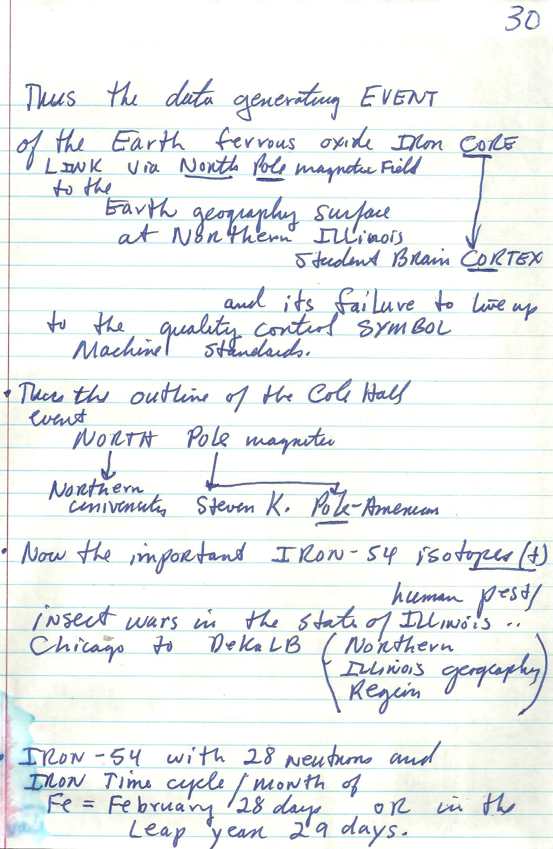 30
Thus the data generating EVENT
of the Earth ferrous oxide IRON CORE
LINK via North Pole magnetic Field
to the
Earth geography surface
at Northern Illinois
Student Brain CORTEX
and its failure to live up
to the quality control SYMBOL
Machine standards.
• Thus the outline of the Cole Hall
event
NORTH Pole magnetic
Northern Steven K. Pole-American
• Now the important IRON-54 isotopes (t)
human pest/
insect wars in the state of Illinois ..
Chicago to DeKALB (Northern
Illinois geography
Region)
• IRON-54 with 28 neutrons and
IRON Time cycle/month of
Fe = February 28 days OR in the
Leap year 29 days.